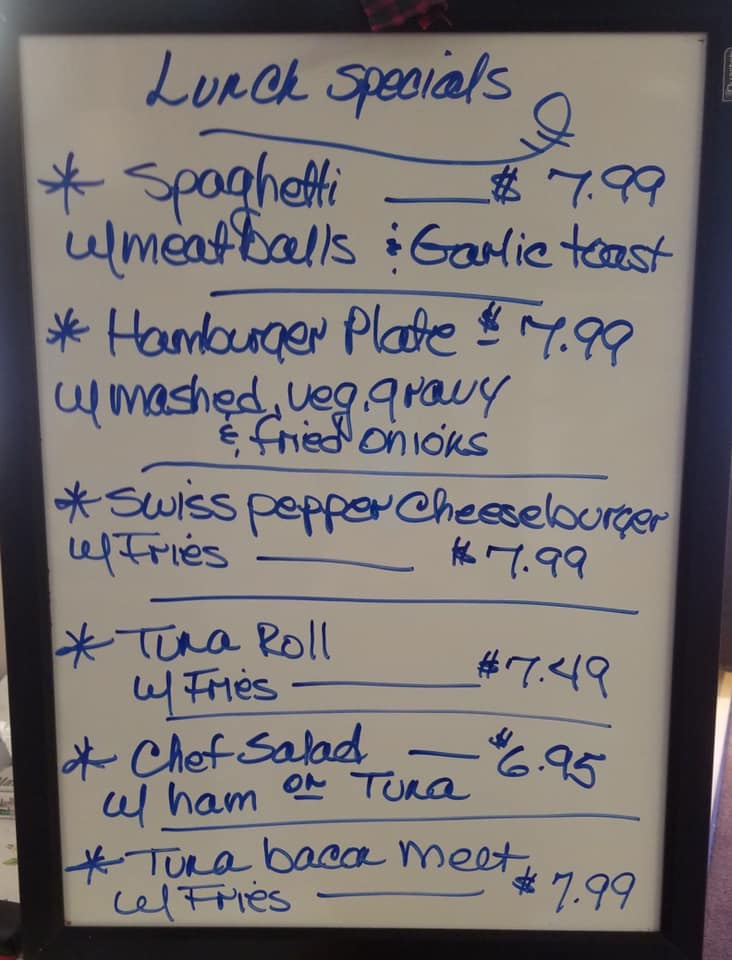 Lunch Specials
* Spaghetti $ 7.99
w/meatballs & Garlic toast
* Hamburger Plate $ 7.99
w/ mashed, veg, gravy
& fried onions
* Swiss pepper Cheeseburger
w/ Fries $ 7.99
* Tuna Roll
w/ Fries $7.49
* Chef Salad $6.95
w/ ham or Tuna
* Tuna bacon meet
w/ Fries $ 7.99